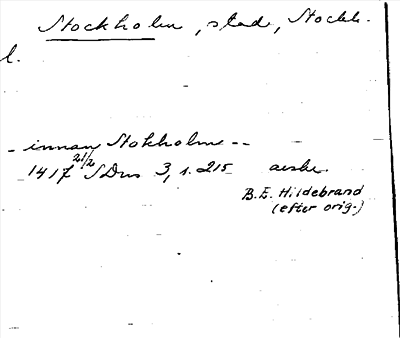 Stockholm, stad, Stockh.
l.
- innan Stokholme --
1417 21/2 SDns 3, s. 215 avskr.
B.E. Hildebrand
(efter orig.)